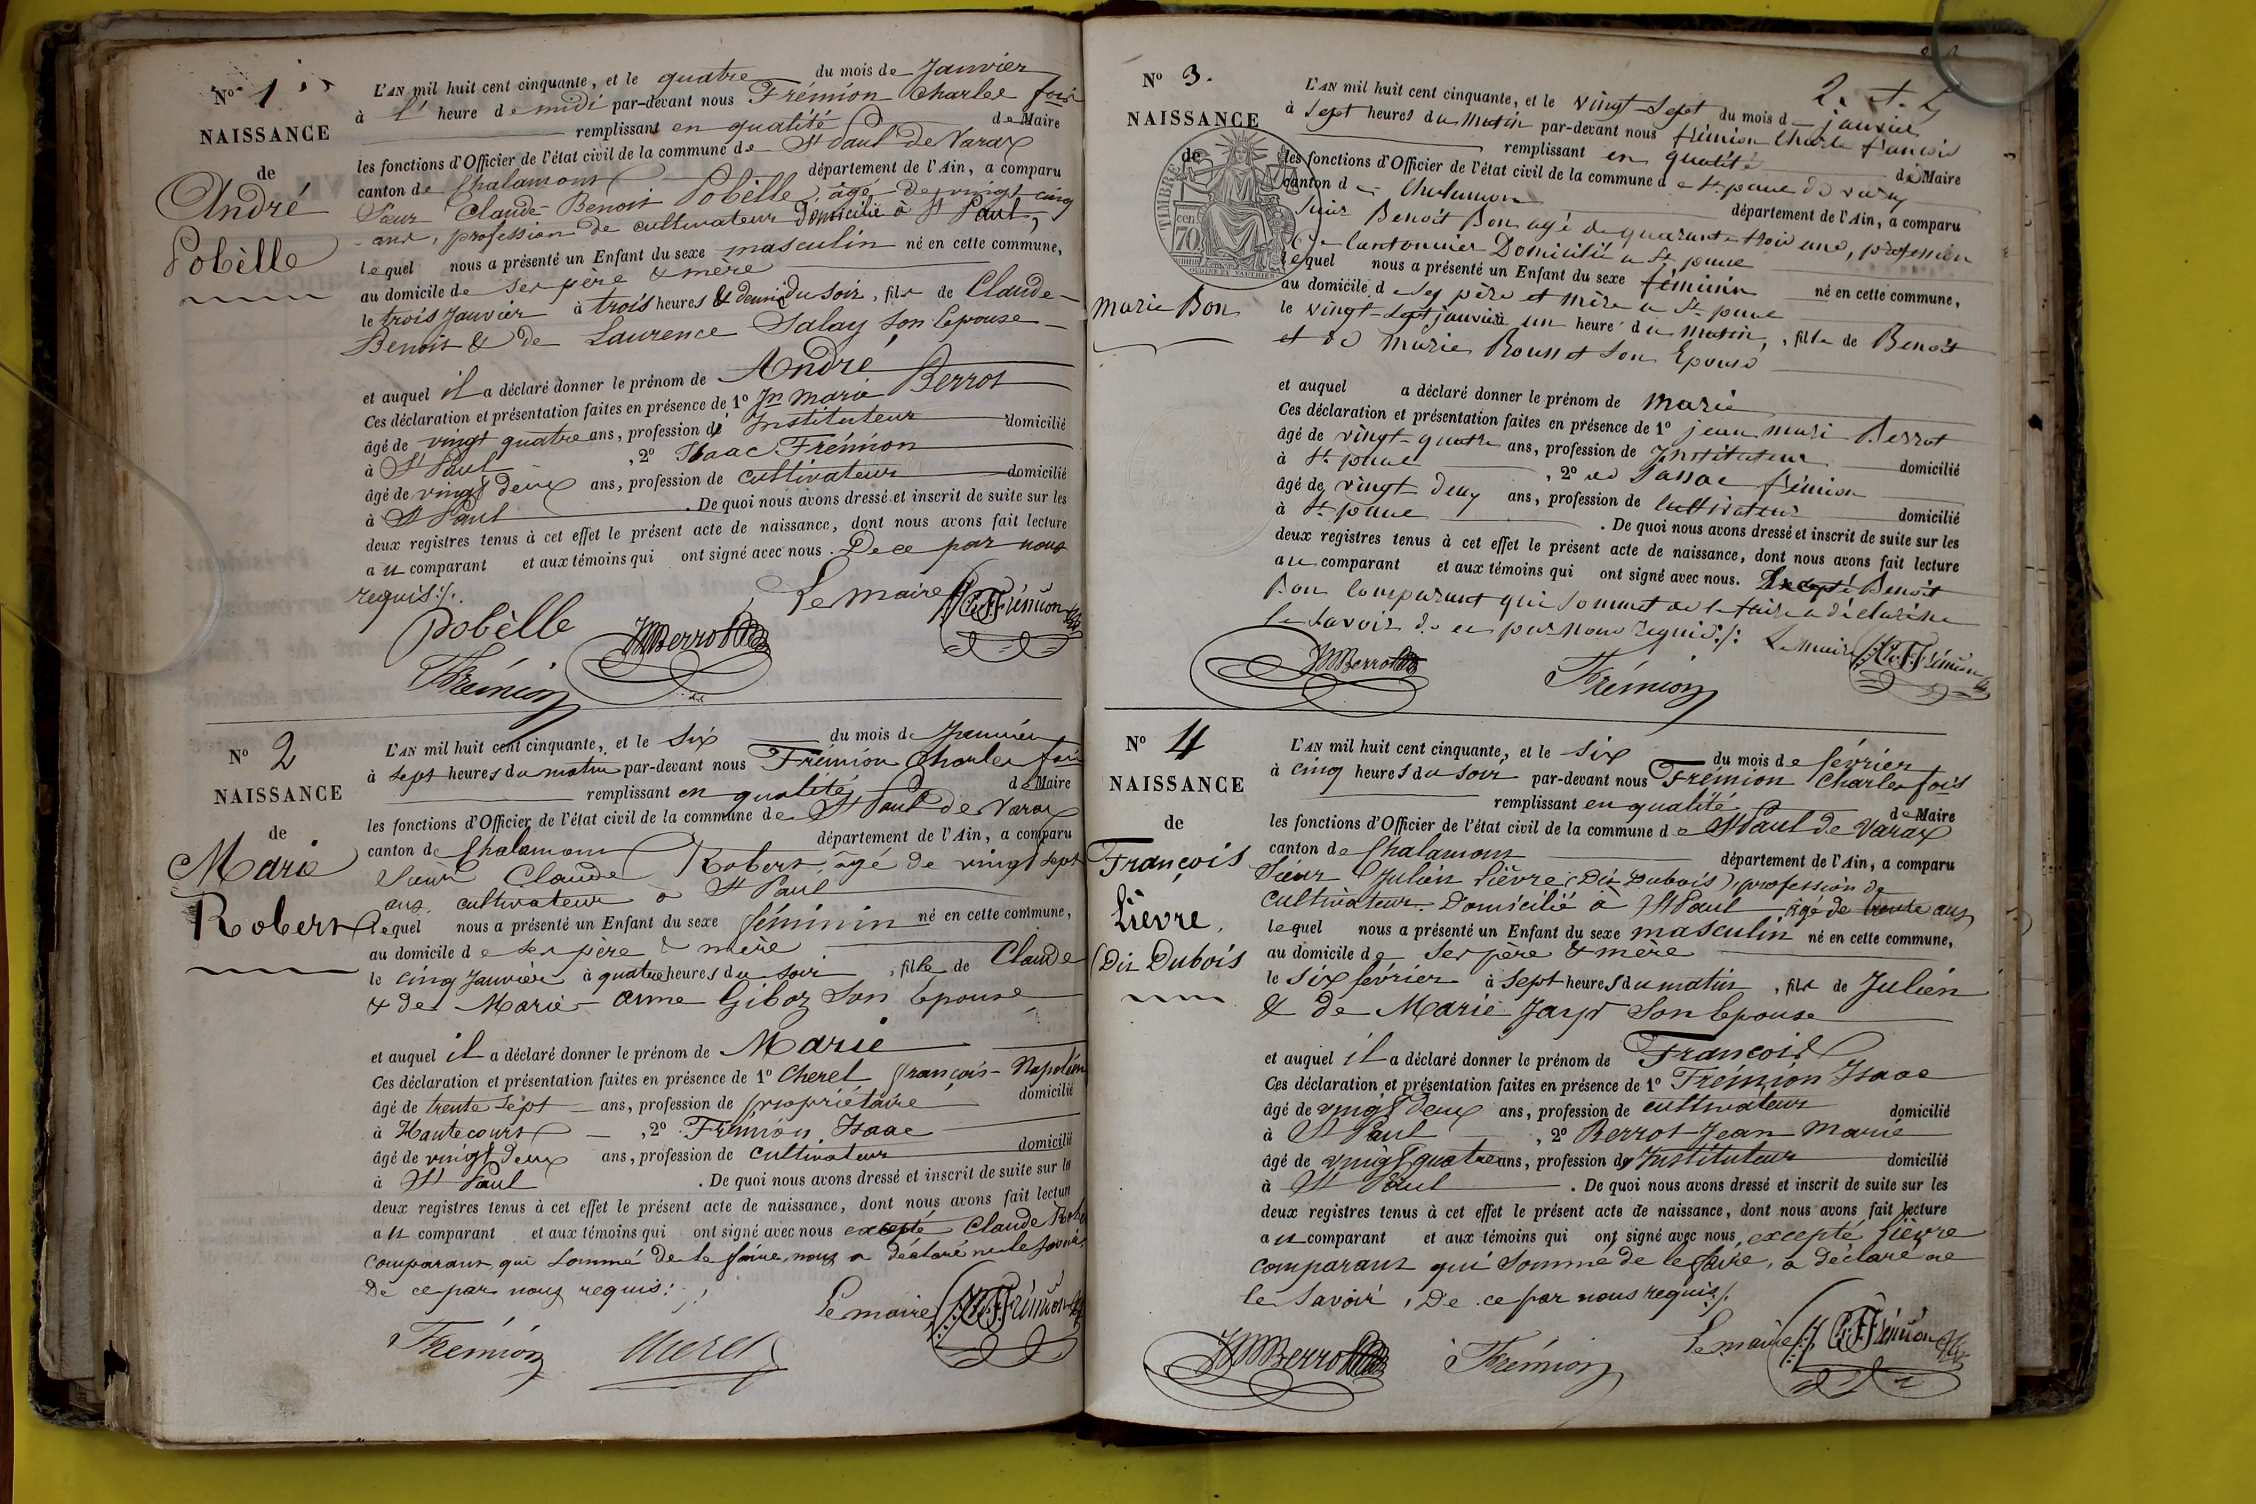 N° 1
NAISSANCE
de
André
Pobèlle
L'AN mil huit cent cinquante, et le quatre du mois de Janvier
à l' heure de midi par-devant nous Frémion Charles fois
remplissant en qualité de Maire
les fonctions d'Officier de l'état civil de la commune de St Paul de Varax
canton de Chalamont département de l'Ain, a comparu
Sieur Claude-Benoit Pobèlle, âgé de vingt cinq
ans, profession de cultivateur Domicilié à St Paul,
lequel nous a présenté un Enfant du sexe masculin né en cette commune,
au domicile de ses père & mère
le trois Janvier à trois heures & demi du soir, fils de Claude-
Benoit & de Laurence Salay Son Epouse
et auquel il a déclaré donner le prénom de André
Ces déclaration et présentation faites en présence de 1° Jn Marie Berrot
âgé de vingt quatre ans, profession d' Instituteur domicilié
à St Paul , 2° Isaac Frémion
âgé de vingt deux ans, profession de cultivateur domicilié
à St Paul . De quoi nous avons dressé et inscrit de suite sur les
deux registres tenus à cet effet le présent acte de naissance, dont nous avons fait lecture
au comparant et aux témoins qui ont signé avec nous. De ce par nous
requis ./.
Le Maire
pobèlle JMBerrot C.F.Frémion
Frémion
N° 2
NAISSANCE
de
Marie
Robert
L'AN mil huit cent cinquante, et le Six du mois de Janvier
à sept heures du matin par-devant nous Frémion Charles fois
remplissant en qualité de Maire
les fonctions d'Officier de l'état civil de la commune de St Paul de Varax
canton de Chalamont département de l'Ain, a comparu
Sieur Claude Robert, âgé de vingt sept
ans, cultivateur à St Paul
lequel nous a présenté un Enfant du sexe féminin né en cette commune,
au domicile de ses père & mère
le cinq Janvier à quatre heures du soir, fille de Claude
& de Marie-Anne Giboz Son Epouse
et auquel il a déclaré donner le prénom de Marie
Ces déclaration et présentation faites en présence de 1° Cherel François-Napoléon
âgé de trente sept ans, profession de propriétaire domicilié
à Hautecourt , 2° Frémion Isaac
âgé de vingt deux ans, profession de cultivateur domicilié
à St Paul . De quoi nous avons dressé et inscrit de suite sur les
deux registres tenus à cet effet le présent acte de naissance, dont nous avons fait lecture
au comparant et aux témoins qui ont signé avec nous excepté Claude Robert
comparant qui Sommé de le faire, nous a déclaré ne le Savoir,
De ce par nous requis
Le maire C.F.Frémion
Frémion Cherel
N° 3.
NAISSANCE
de
TIMBRE
70 cen
Marie Bon
L'AN mil huit cent cinquante, et le vingt-sept du mois de janvier
à sept heures du matin par-devant nous frémion Charle francois
remplissant en qualité de Maire
les fonctions d'Officier de l'état civil de la commune de St paul de varax
canton de Chalamon département de l'Ain, a comparu
Benoit Bon agé de quarante trois ans, profession
de Cantonnier Domicilié a St paul
lequel nous a présenté un Enfant du sexe féminin né en cette commune,
au domicile de ses père et mère a St paul
le vingt-sept janvier à un heure du matin, fille de Benoit
et de marie Rousset son Epouse
et auquel a déclaré donner le prénom de marie
Ces déclaration et présentation faites en présence de 1° jean mari Berrot
âgé de vingt-quatre ans, profession de Instituteur domicilié
à St paul , 2° frémion
âgé de vingt-deux ans, profession de Cultivateur domicilié
à St paul . De quoi nous avons dressé et inscrit de suite sur les
deux registres tenus à cet effet le présent acte de naissance, dont nous avons fait lecture
au comparant et aux témoins qui ont signé avec nous. Excepté Benoit
Bon Comparant qui sommet de le faire a déclaré ne
le savoir de ce par nous requis ./. Le maire C.F.Frémion
JMBerrot Frémion
N° 4
NAISSANCE
de
François
Lièvre,
(Dit Dubois
L'AN mil huit cent cinquante, et le six du mois de février
à cinq heures du soir par-devant nous Frémion Charles fois
remplissant en qualité de Maire
les fonctions d'Officier de l'état civil de la commune de St Paul de Varax
canton de Chalamont département de l'Ain, a comparu
Sieur Julien Lièvre (Dit Dubois), profession de
cultivateur Domicilié à St Paul âgé de trente ans
lequel nous a présenté un Enfant du sexe masculin né en cette commune,
au domicile de ses père & mère
le six février à sept heures du matin, fils de Julien
& de Marie Jayr Son Epouse
et auquel il a déclaré donner le prénom de François
Ces déclaration et présentation faites en présence de 1° Frémion Isaac
âgé de vingt deux ans, profession de cultivateur domicilié
à St Paul , 2° Berrot Jean Marie
âgé de vingt quatre ans, profession d' Instituteur domicilié
à St Paul . De quoi nous avons dressé et inscrit de suite sur les
deux registres tenus à cet effet le présent acte de naissance, dont nous avons fait lecture
au comparant et aux témoins qui ont signé avec nous, excepté Lièvre
comparant qui Sommé de le faire, a déclaré ne
le Savoir, De ce par nous requis ./.
Le maire C.F.Frémion
JMBerrot Frémion